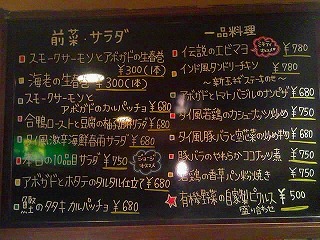 前菜・サラダ
スモークサーモンとアボガドの生春巻
¥300(1本)
海老の生春巻 ¥300(1本)
スモークサーモンと
アボガドのカルパッチョ ¥680
合鴨ローストと豆腐の サラダ ¥680
タイ風激辛海鮮春雨サラダ ¥680
本日の10品目サラダ ¥750
アボガドとホタテのタルタル仕立て ¥680
鰹のタタキカルパッチョ ¥680
一品料理
伝説のエビマヨ ¥780
インド風タンドリーチキン ¥780
〜新玉ネギステーキのせ〜
アボガドとトマトバジルのナンピザ ¥680
タイ風若鶏のカシューナッツ炒め ¥780
タイ風豚バラと空芯菜の炒め物 ¥680
豚バラのやわらかココナッツ煮 ¥750
若鶏の香草パン粉焼き ¥750
有機野菜の自家製ピクルス ¥500
盛り合わせ